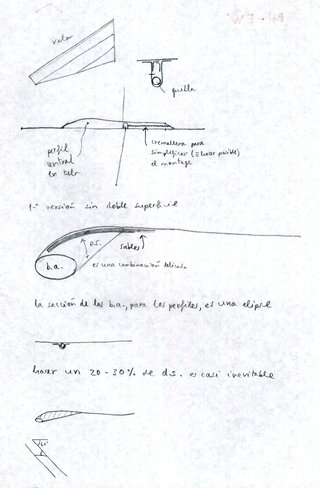 vela
quilla
perfil
central
en tela
cremallera para
simplificar (= hacer posible)
el montaje
1ª versión sin doble superficie
D.S.
sables
b.a.
es una combinación
la sección de los b.a., para los perfiles, es una elipse
hacer un 20-30% de d.s. es casi inevitable